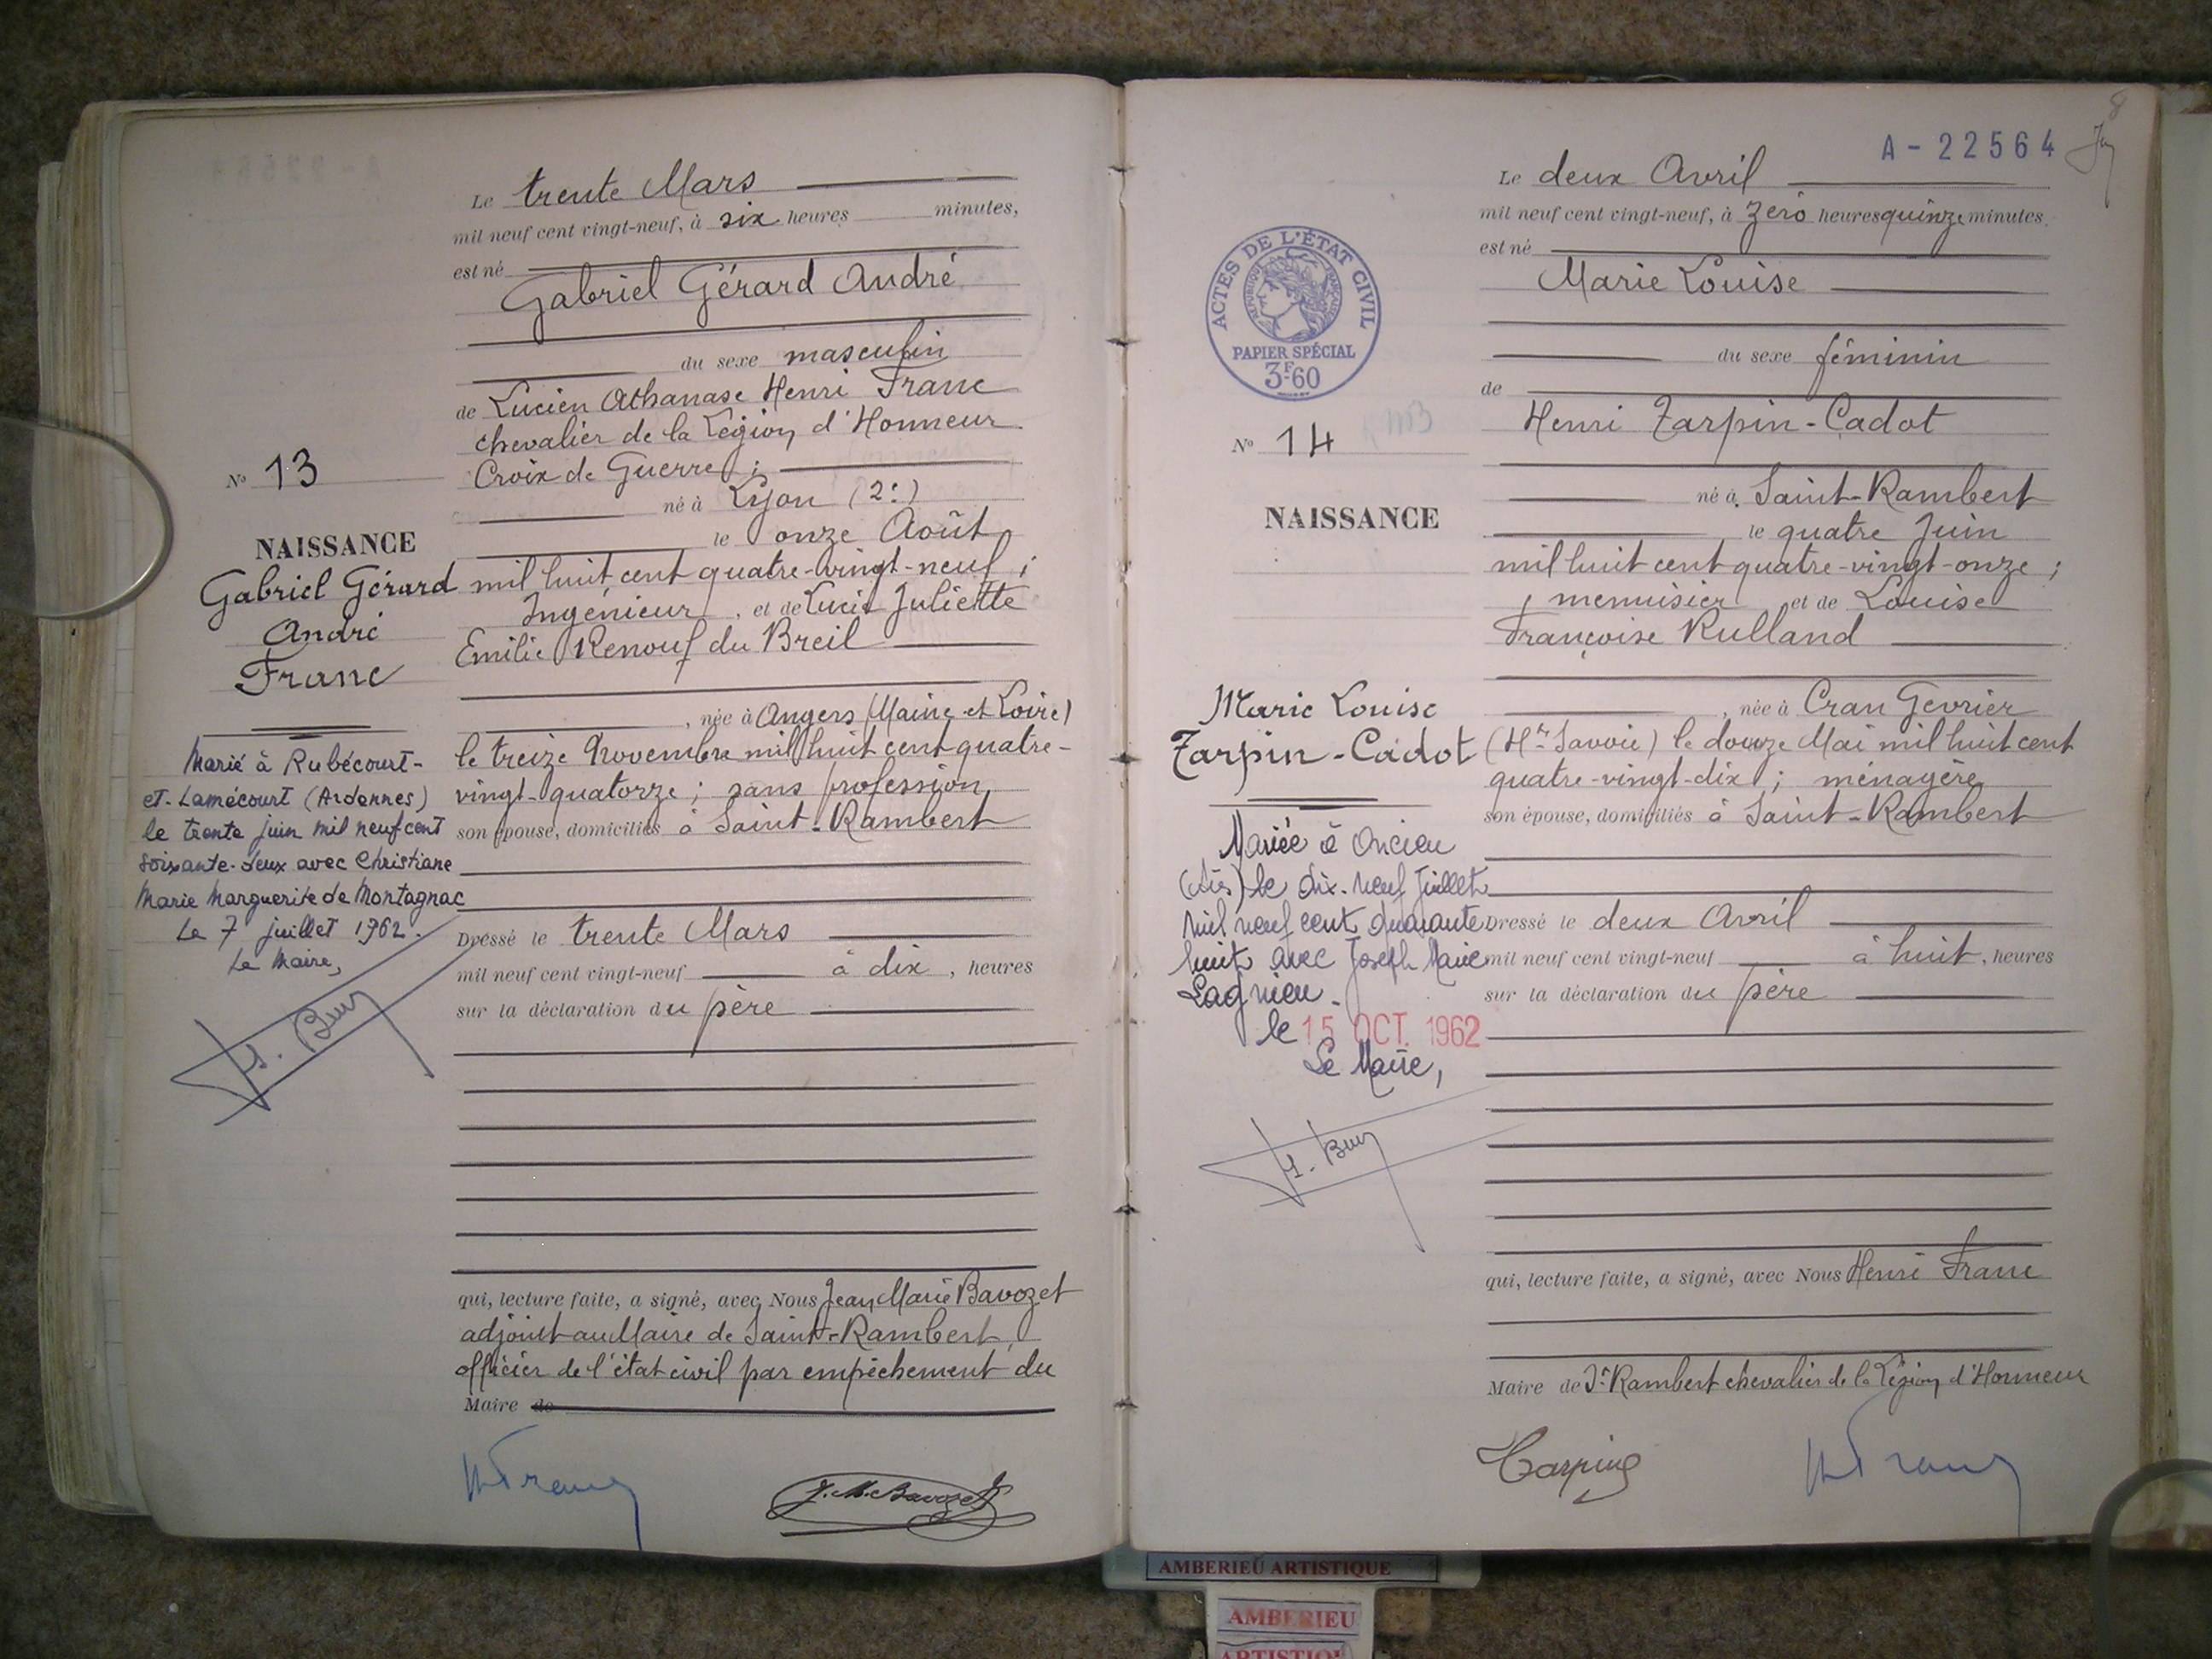 Le trente Mars
mil neuf cent vingt-neuf, à six heures minutes,
est né
Gabriel Gérard André
du sexe masculin
de Lucien Athanase Henri Franc
chevalier de la Légion d'Honneur
Croix de Guerre ;
né à Lyon (2e)
le onze Août
mil huit cent quatre-vingt-neuf ;
Ingénieur, et de Lucie Juliette
Emilie Renouf du Breil
, née à Angers (Maine et Loire)
le treize Novembre mil huit cent quatre-
vingt-quatorze ; sans profession,
son épouse, domiciliés à Saint-Rambert
Dressé le trente Mars
mil neuf cent vingt-neuf à dix, heures
sur la déclaration du père
qui, lecture faite, a signé, avec Nous Jean Marie Bavozet
adjoint au Maire de Saint-Rambert,
officier de l'état civil par empêchement du
Maire de
J. M. Bavozet
No 13
NAISSANCE
Gabriel Gérard
André
Franc
Marié à Rubécourt-
et-Lamécourt (Ardennes)
le trente juin mil neuf cent
soixante-deux avec Christiane
Marie Marguerite de Montagnac
Le 7 juillet 1962.
Le Maire,
A-22564
8
Le deux Avril
mil neuf cent vingt-neuf, à zéro heures quinze minutes.
est né
Marie Louise
du sexe féminin
de
Henri Tarpin-Cadot
né à Saint-Rambert
le quatre Juin
mil huit cent quatre-vingt-onze ;
menuisier et de Louise
Françoise Rulland
, née à Cran Gevrier
(Hte Savoie) le douze Mai mil huit cent
quatre-vingt-dix ; ménagère
son épouse, domiciliés à Saint-Rambert
Dressé le deux Avril
mil neuf cent vingt-neuf à huit, heures
sur la déclaration du père
qui, lecture faite, a signé, avec Nous Henri Franc
Maire de St Rambert chevalier de la Légion d'Honneur
Tarpin
ACTES DE L'ÉTAT CIVIL
RÉPUBLIQUE FRANÇAISE
PAPIER SPÉCIAL
3F.60
No 14
NAISSANCE
Marie Louise
Tarpin-Cadot
Mariée à Oncieu
(Ain) le dix-neuf Juillet
mil neuf cent quarante
huit avec Joseph Marie
Lagnieu.
le 15 OCT. 1962
Le Maire,
AMBERIEU ARTISTIQUE
AMBERIEU
ARTISTIQUE